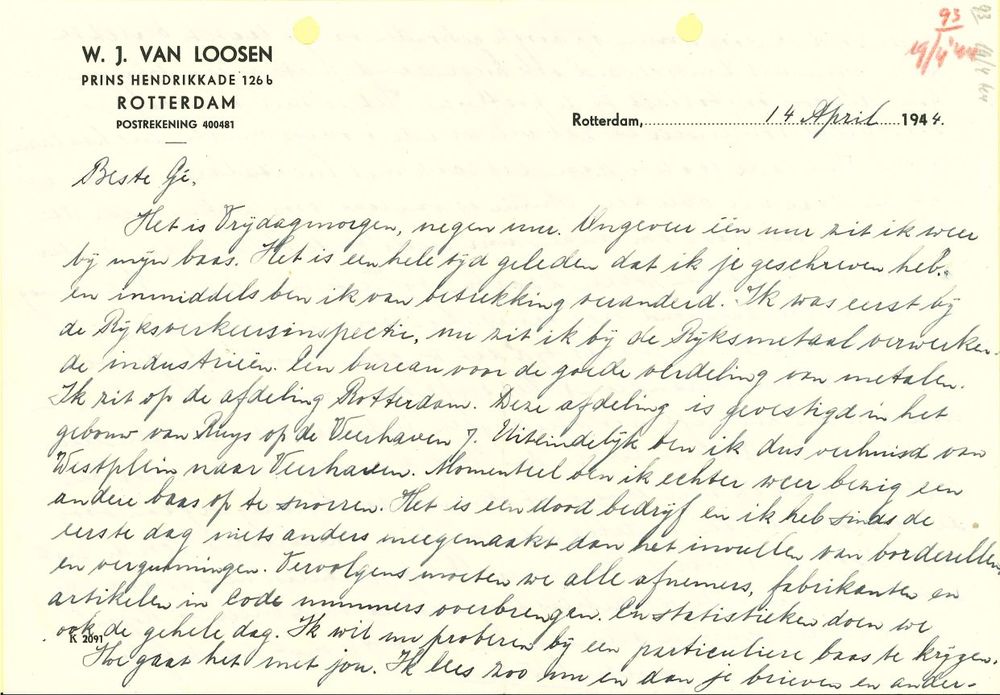 93
19/4 '44
93
19/4 44
W. J. VAN LOOSEN
PRINS HENDRIKKADE 126b
ROTTERDAM
POSTREKENING 400481
Rotterdam, 14 April 1944.
Beste Gé,
Het is Vrijdagmorgen, negen uur. Ongeveer één uur zit ik weer
bij mijn baas. Het is een hele tijd geleden dat ik je geschreven heb
en inmiddels ben ik van betrekking veranderd. Ik was eerst bij
de Rijksverkeersinspectie, nu zit ik bij de Rijksmetaal verwerken-
de industrieën. Een bureau voor de goede verdeling van metalen.
Ik zit op de afdeling Rotterdam. Deze afdeling is gevestigd in het
gebouw van Ruys op de Veerhaven 7. Uiteindelijk ben ik dus verhuisd van
Westplein naar Veerhaven. Momenteel ben ik echter weer bezig een
andere baas op te snorren. Het is een dood bedrijf en ik heb sinds de
eerste dag niets anders meegemaakt dan het invullen van borderellen
en vergunningen. Vervolgens moeten we alle afnemers, fabrikanten en
artikelen in code nummers overbrengen. En statistieken doen we
ook de gehele dag. Ik wil nu proberen bij een particuliere baas te krijgen.
K 2091
Hoe gaat het met jou. Ik lees zoo nu en dan je brieven en ander-